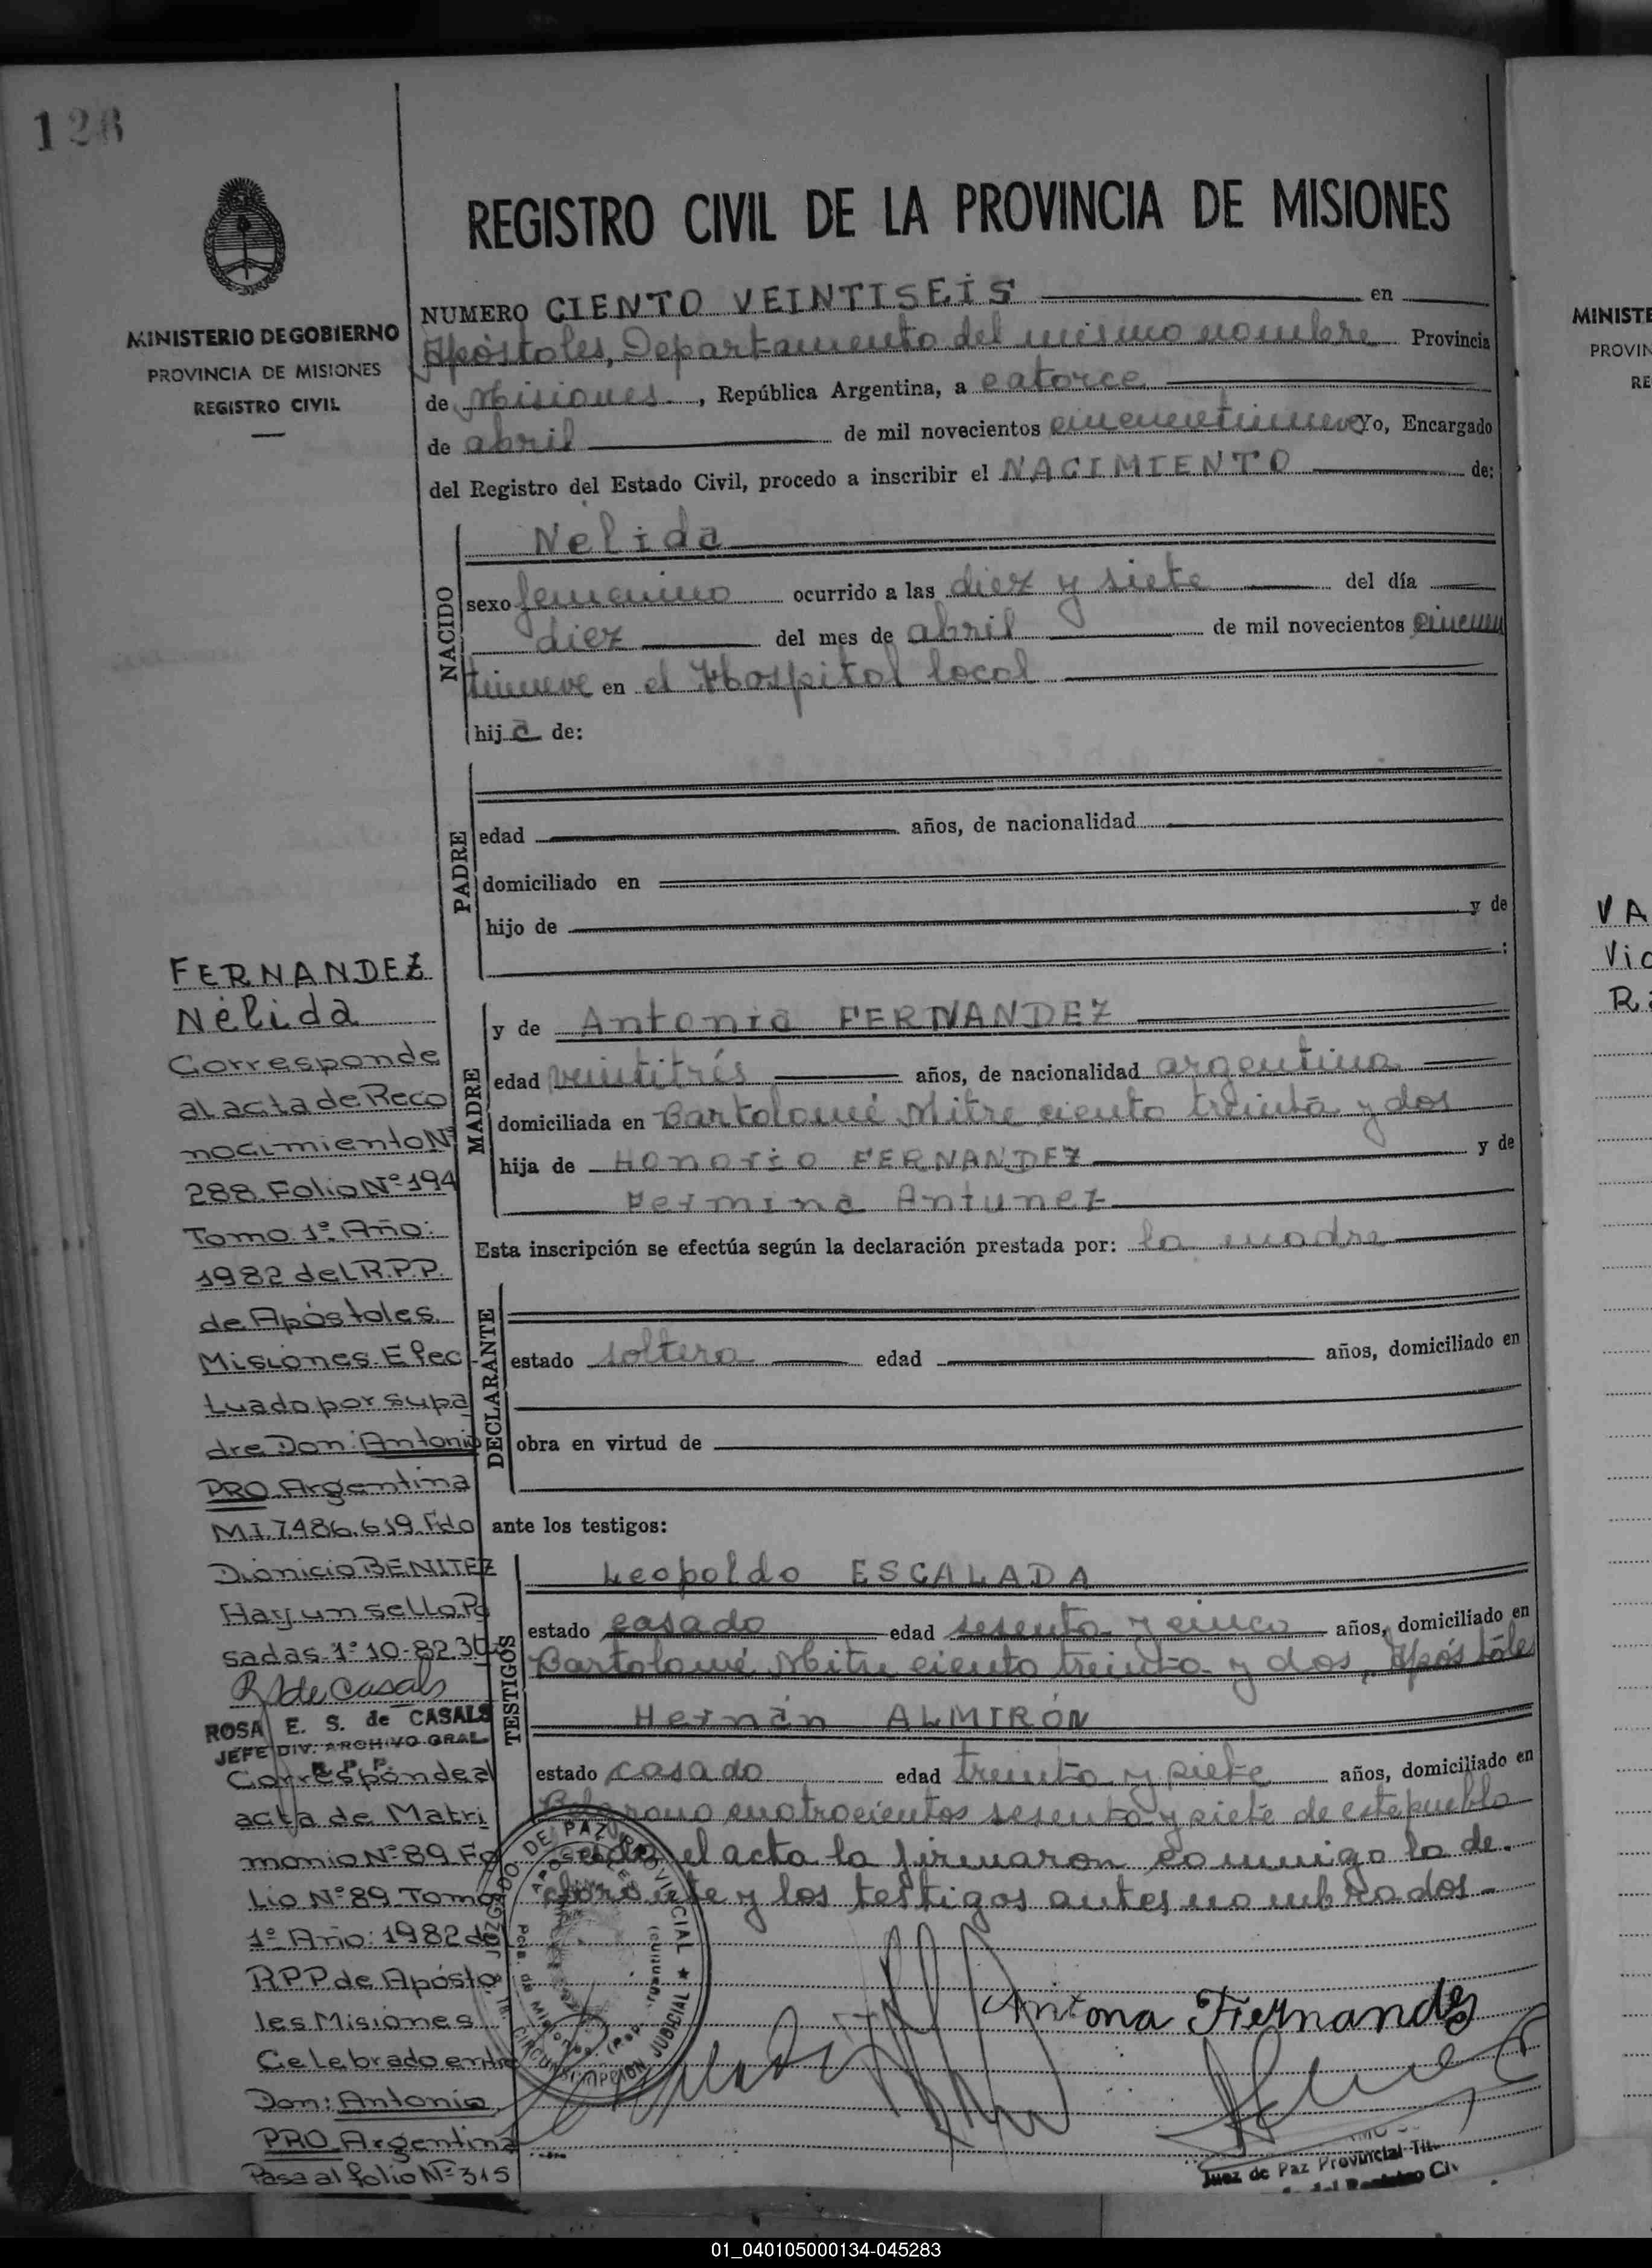 126
MINISTERIO DE GOBIERNO
PROVINCIA DE MISIONES
REGISTRO CIVIL
REGISTRO CIVIL DE LA PROVINCIA DE MISIONES
NUMERO CIENTO VEINTISEIS en
Apóstoles, Departamento del mismo nombre Provincia
de Misiones, República Argentina, a catorce
de abril de mil novecientos cincuentinueve Yo, Encargado
del Registro del Estado Civil, procedo a inscribir el NACIMIENTO de:
NACIDO
Nélida
sexo femenino ocurrido a las diez y siete del día
diez del mes de abril de mil novecientos cincuen
tinueve en el Hospital local
hija de:
PADRE
edad años, de nacionalidad
domiciliado en
hijo de y de
:
MADRE
y de Antonia FERNANDEZ
edad veintitrés años, de nacionalidad argentina
domiciliada en Bartolomé Mitre ciento treinta y dos
hija de Honorio FERNANDEZ y de
Fermina Antunez
Esta inscripción se efectúa según la declaración prestada por: la madre
DECLARANTE
estado soltera edad años, domiciliado en
obra en virtud de
ante los testigos:
TESTIGOS
Leopoldo ESCALADA
estado casado edad sesenta y cinco años, domiciliado en
Bartolomé Mitre ciento treinta y dos, Apóstole
Hernán ALMIRÓN
estado casado edad treinta y siete años, domiciliado en
Belgrano cuatrocientos sesenta y siete de este pueblo
Leída el acta la firmaron conmigo la de-
clarante y los testigos antes nombrados.-
Antonia Fernandez
Juez de Paz Provincial Tit.
JUZGADO DE PAZ PROVINCIAL
APOSTOLES
Pcia. de Misiones (Rep. Argentina)
CIRCUNSCRIPCION JUDICIAL
FERNANDEZ
Nélida
Corresponde
al acta de Reco
nocimiento Nº
288 Folio Nº 194
Tomo 1º Año:
1982 del R.P.P.
de Apóstoles
Misiones. Efec
tuado por su pa
dre Don: Antonio
PRO Argentina
M.I. 7.486.619. Fdo
Dionicio BENITEZ
Hay un sello. Po
sadas. 1º 10-82
R S de Casals
ROSA E. S. de CASALS
JEFE DIV. ARCHIVO GRAL.
R. P. P.
Corresponde al
acta de Matri
monio Nº 89 Fo
lio Nº 89 Tomo
1º Año: 1982 del
R.P.P de Apósto
les Misiones
Celebrado entre
Don: Antonio
PRO Argentina
Pasa al folio Nº 315
MINISTE
PROVIN
RE
VA
Vic
01_040105000134-045283